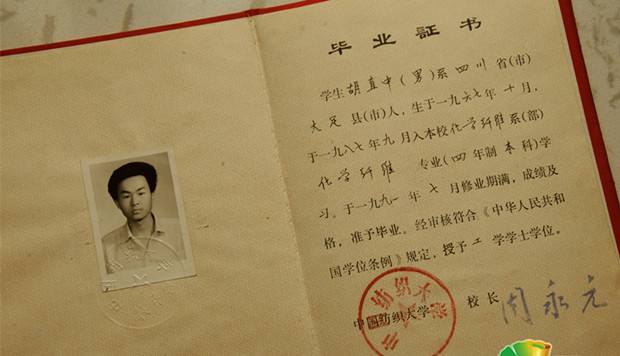 毕业证书
学生胡直中(男)系四川省(市)
大足县(市)人，生于一九六七年十月，
于一九八七年九月入本校化学纤维系(部)
化学纤维专业(四年制本科)学
习。于一九九一年七月修业期满，成绩及
格，准予毕业。经审核符合《中华人民共和
国学位条例》规定，授予工学学士学位。
中国纺织大学
校长 周永元